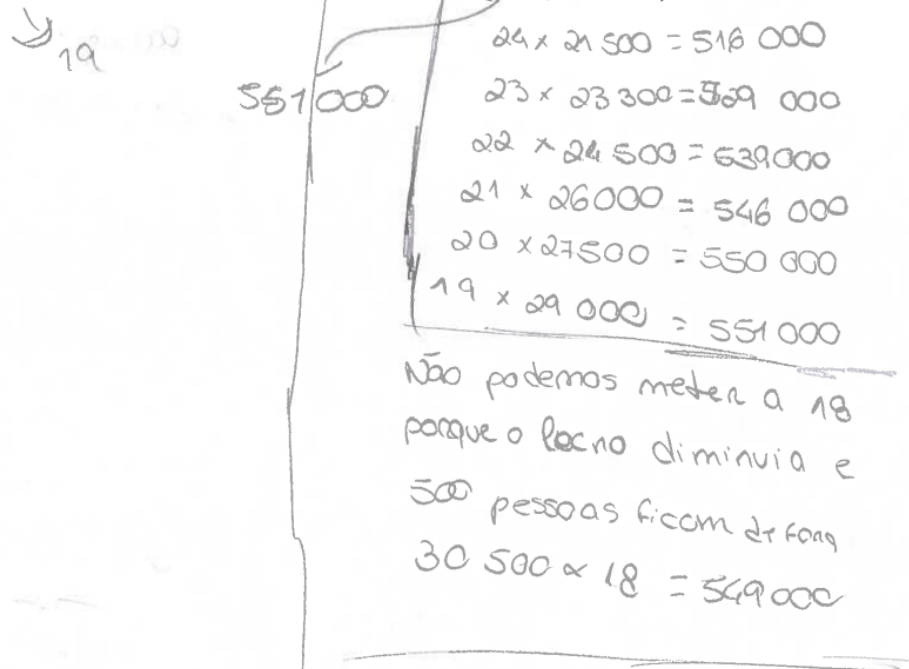 19
551 000
24 × 21 500 = 516 000
23 × 23 300 = 529 000
22 × 24 500 = 539000
21 × 26000 = 546 000
20 × 27500 = 550 000
19 × 29 000 = 551 000
Não podemos meter a 18
porque o locro diminuia e
500 pessoas ficam de fora
30 500 × 18 = 549000